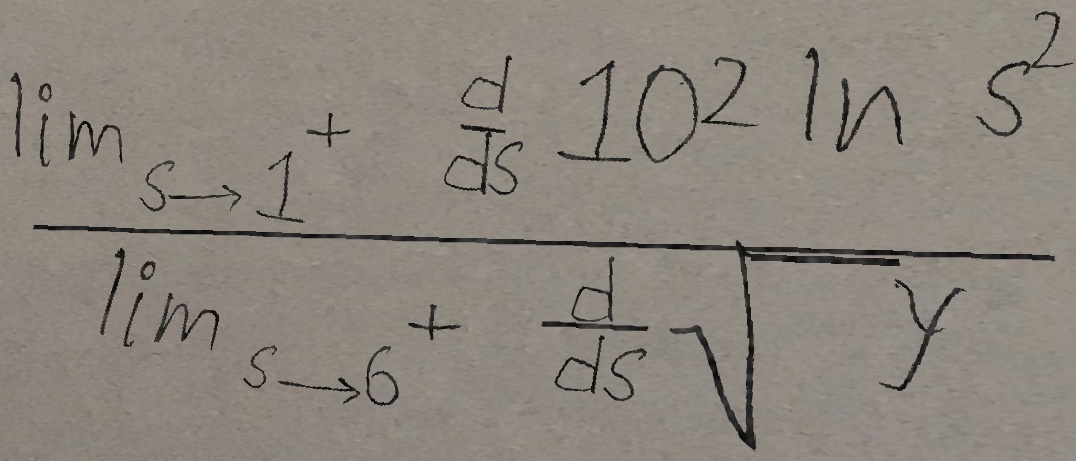 lim s→1⁺ d/ds 10² ln s²
lim s→6⁺ d/ds √y